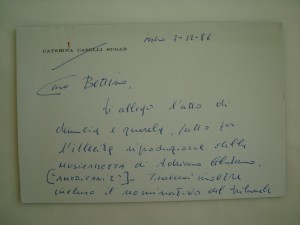 CATERINA CASELLI SUGAR
Milano 2-12-86
Caro Bettino,
Ti allego l'atto di
denuncia e querela, fatto per
l'illecita riproduzione della
di Adriano Celentano,
Troverai inoltre
incluso il nominativo del